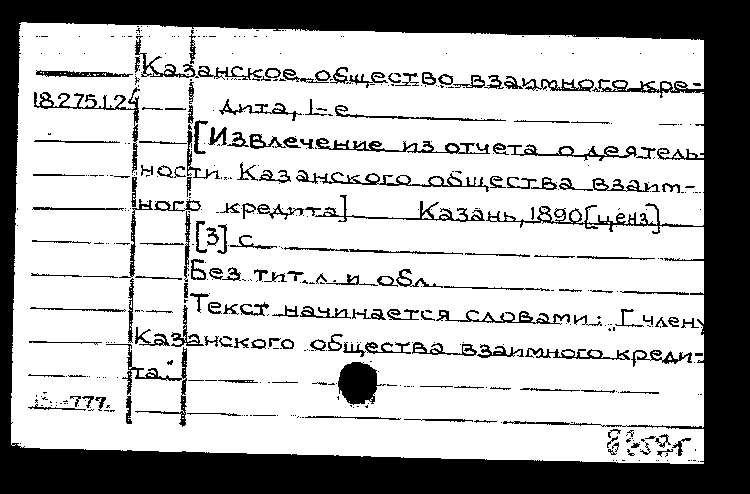 Казанское общество взаимного кре-
18.275.1.24 дита, 1-е
[Извлечение из отчета о деятель-
ности Казанского общества взаим-
ного кредита] Казань, 1890 [ценз.]
[3] с.
Без тит. л. и обл.
Текст начинается словами: „Г. члену
Казанского общества взаимного креди-
та".